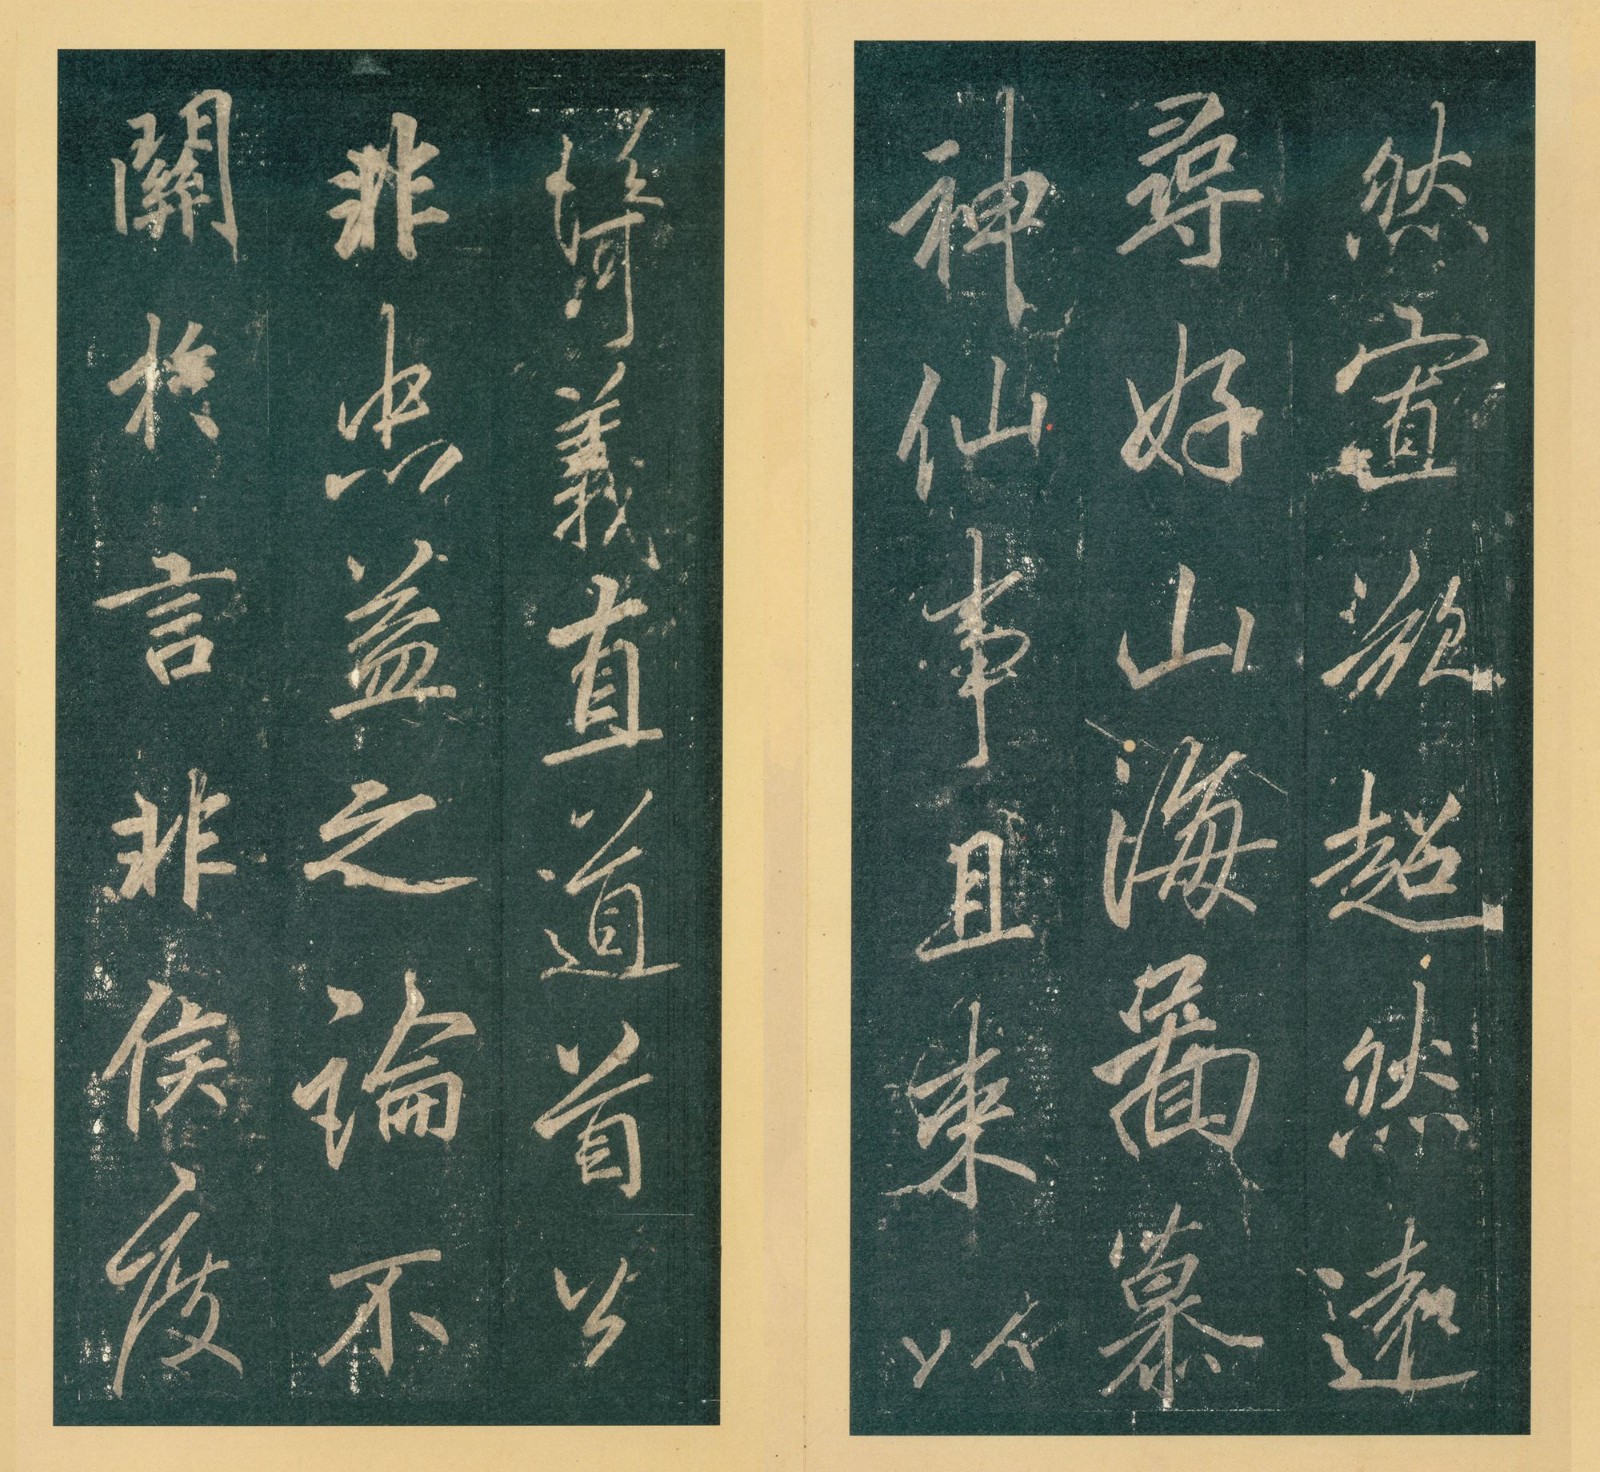 然寘欲超然遠
尋好山海圖慕
神仙事且束以
義直道首公
非忠益之論不
關於言非侯度